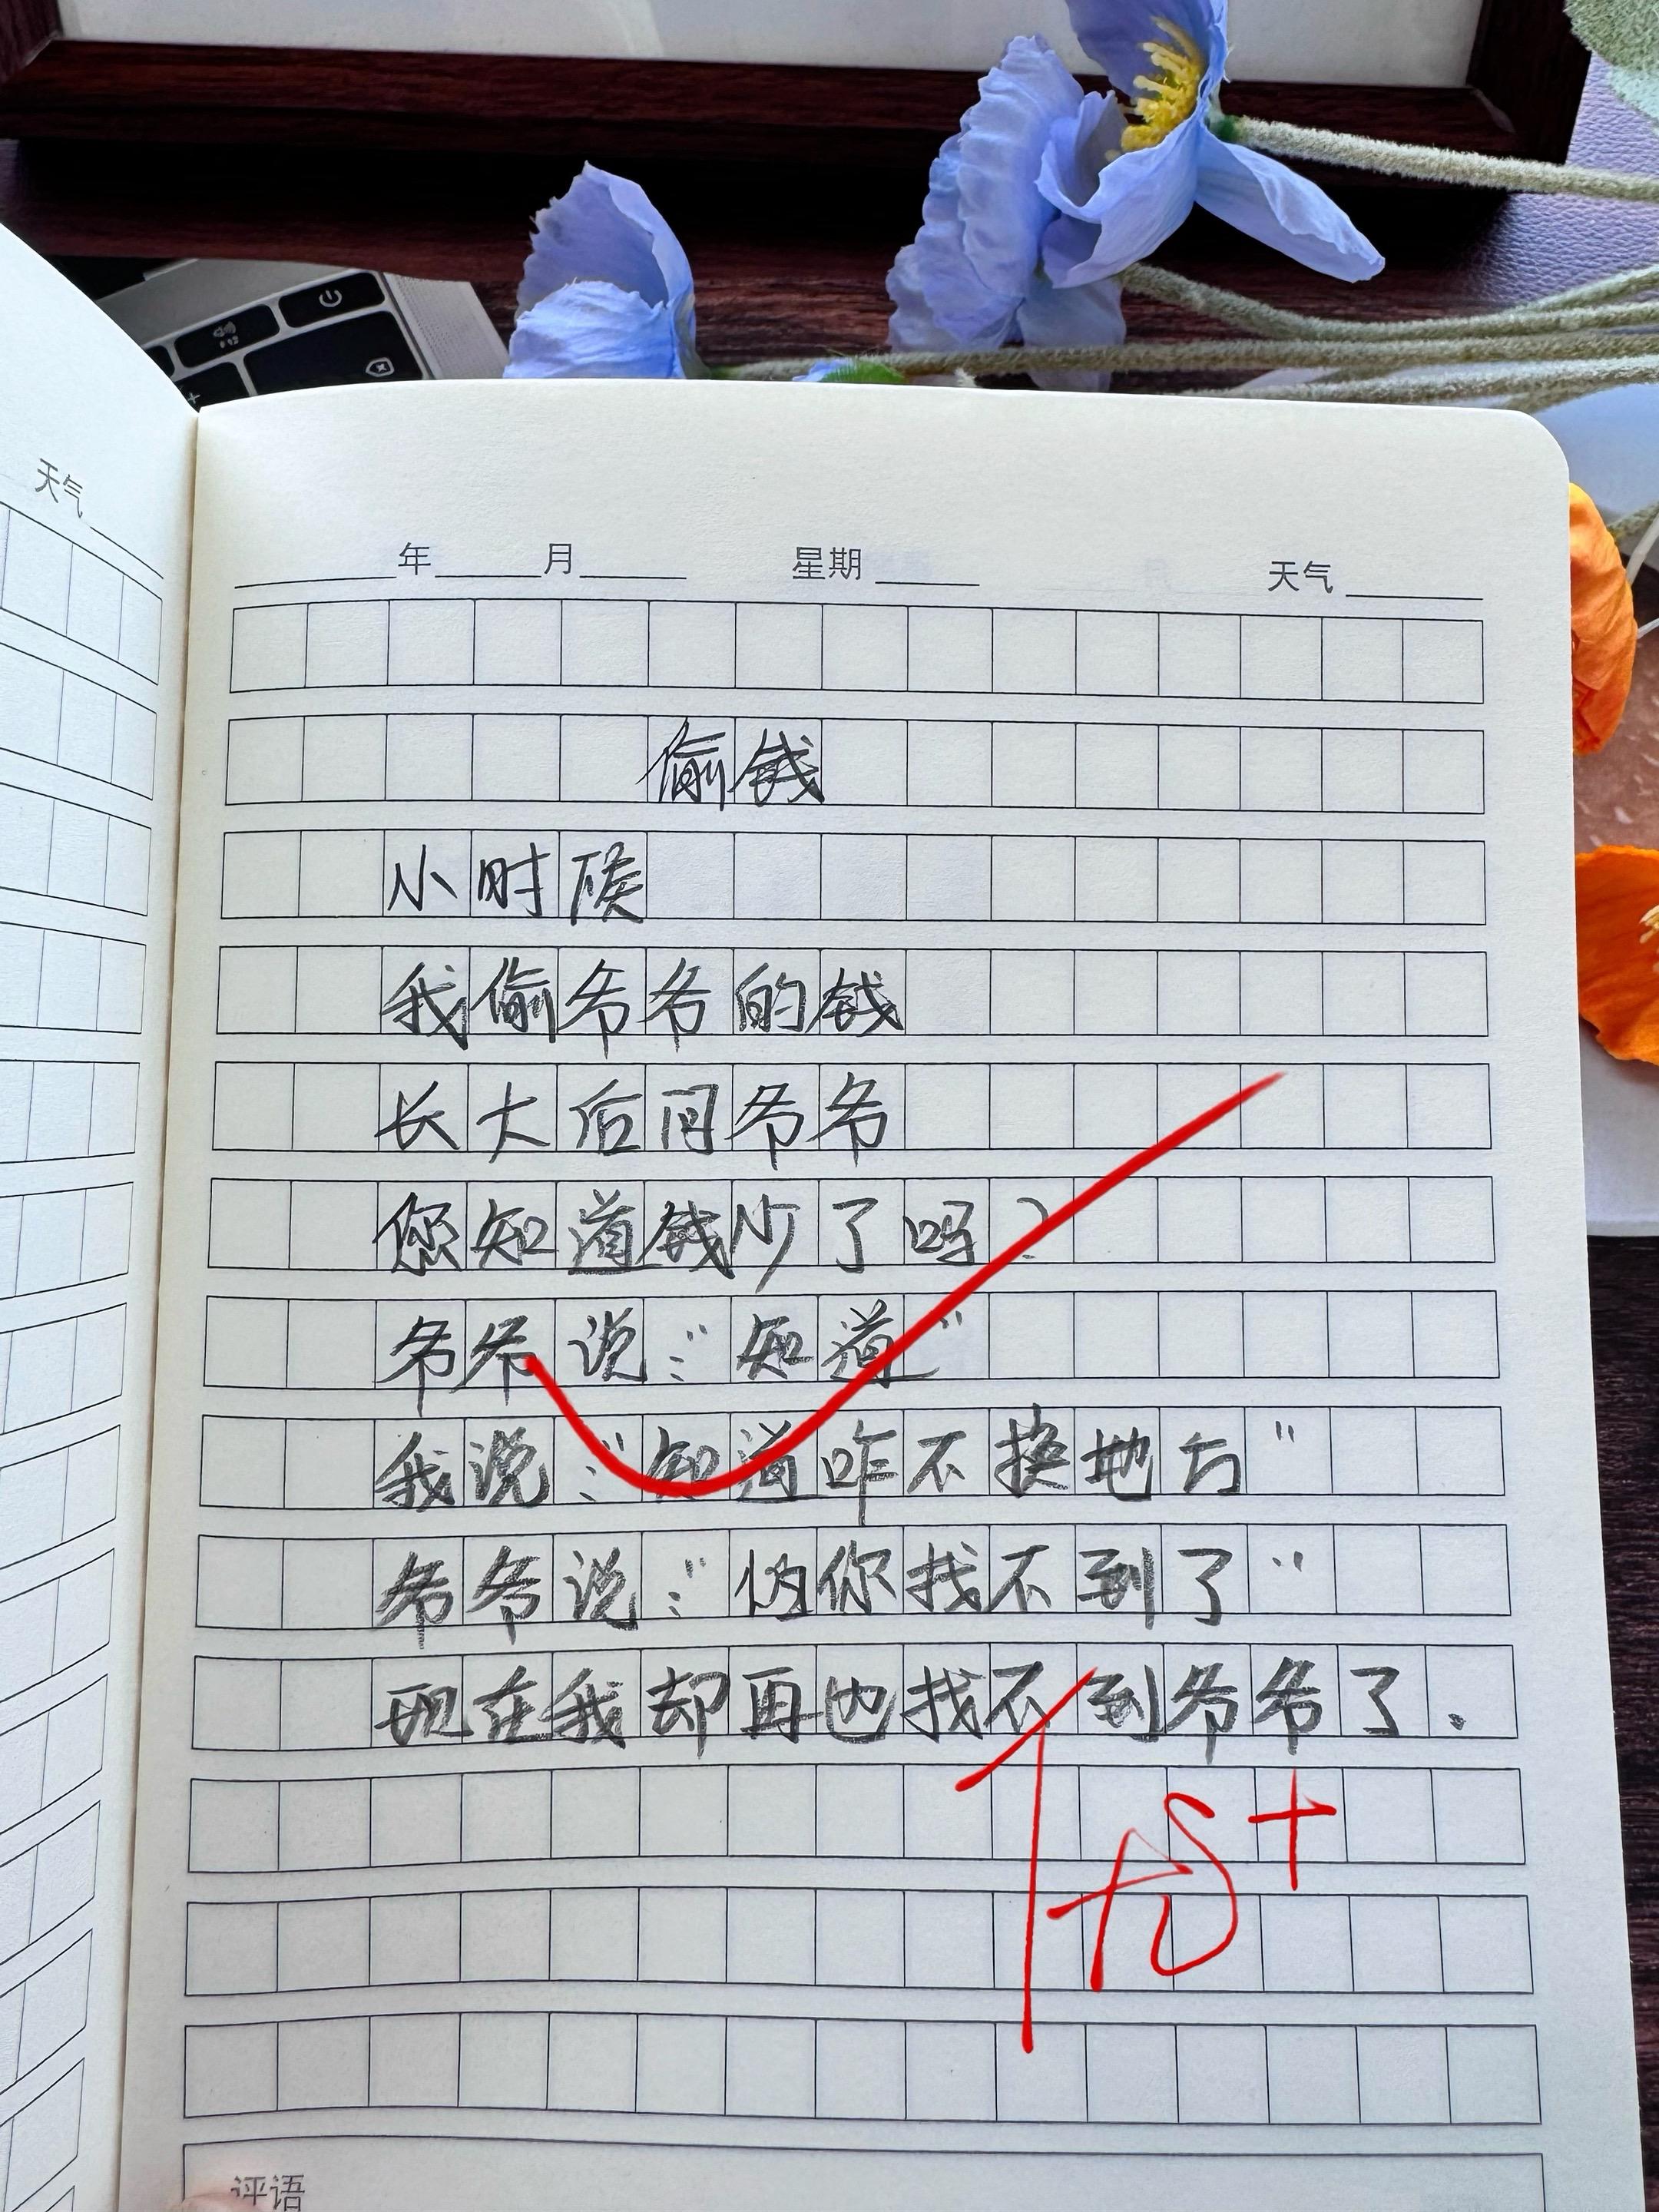 天气
年 月 星期 天气
偷钱
小时候
我偷爷爷的钱
长大后问爷爷
您知道钱少了吗？
爷爷说："知道"
我说："知道咋不换地方"
爷爷说："怕你找不到了"
现在我却再也找不到爷爷了.
优+
评语